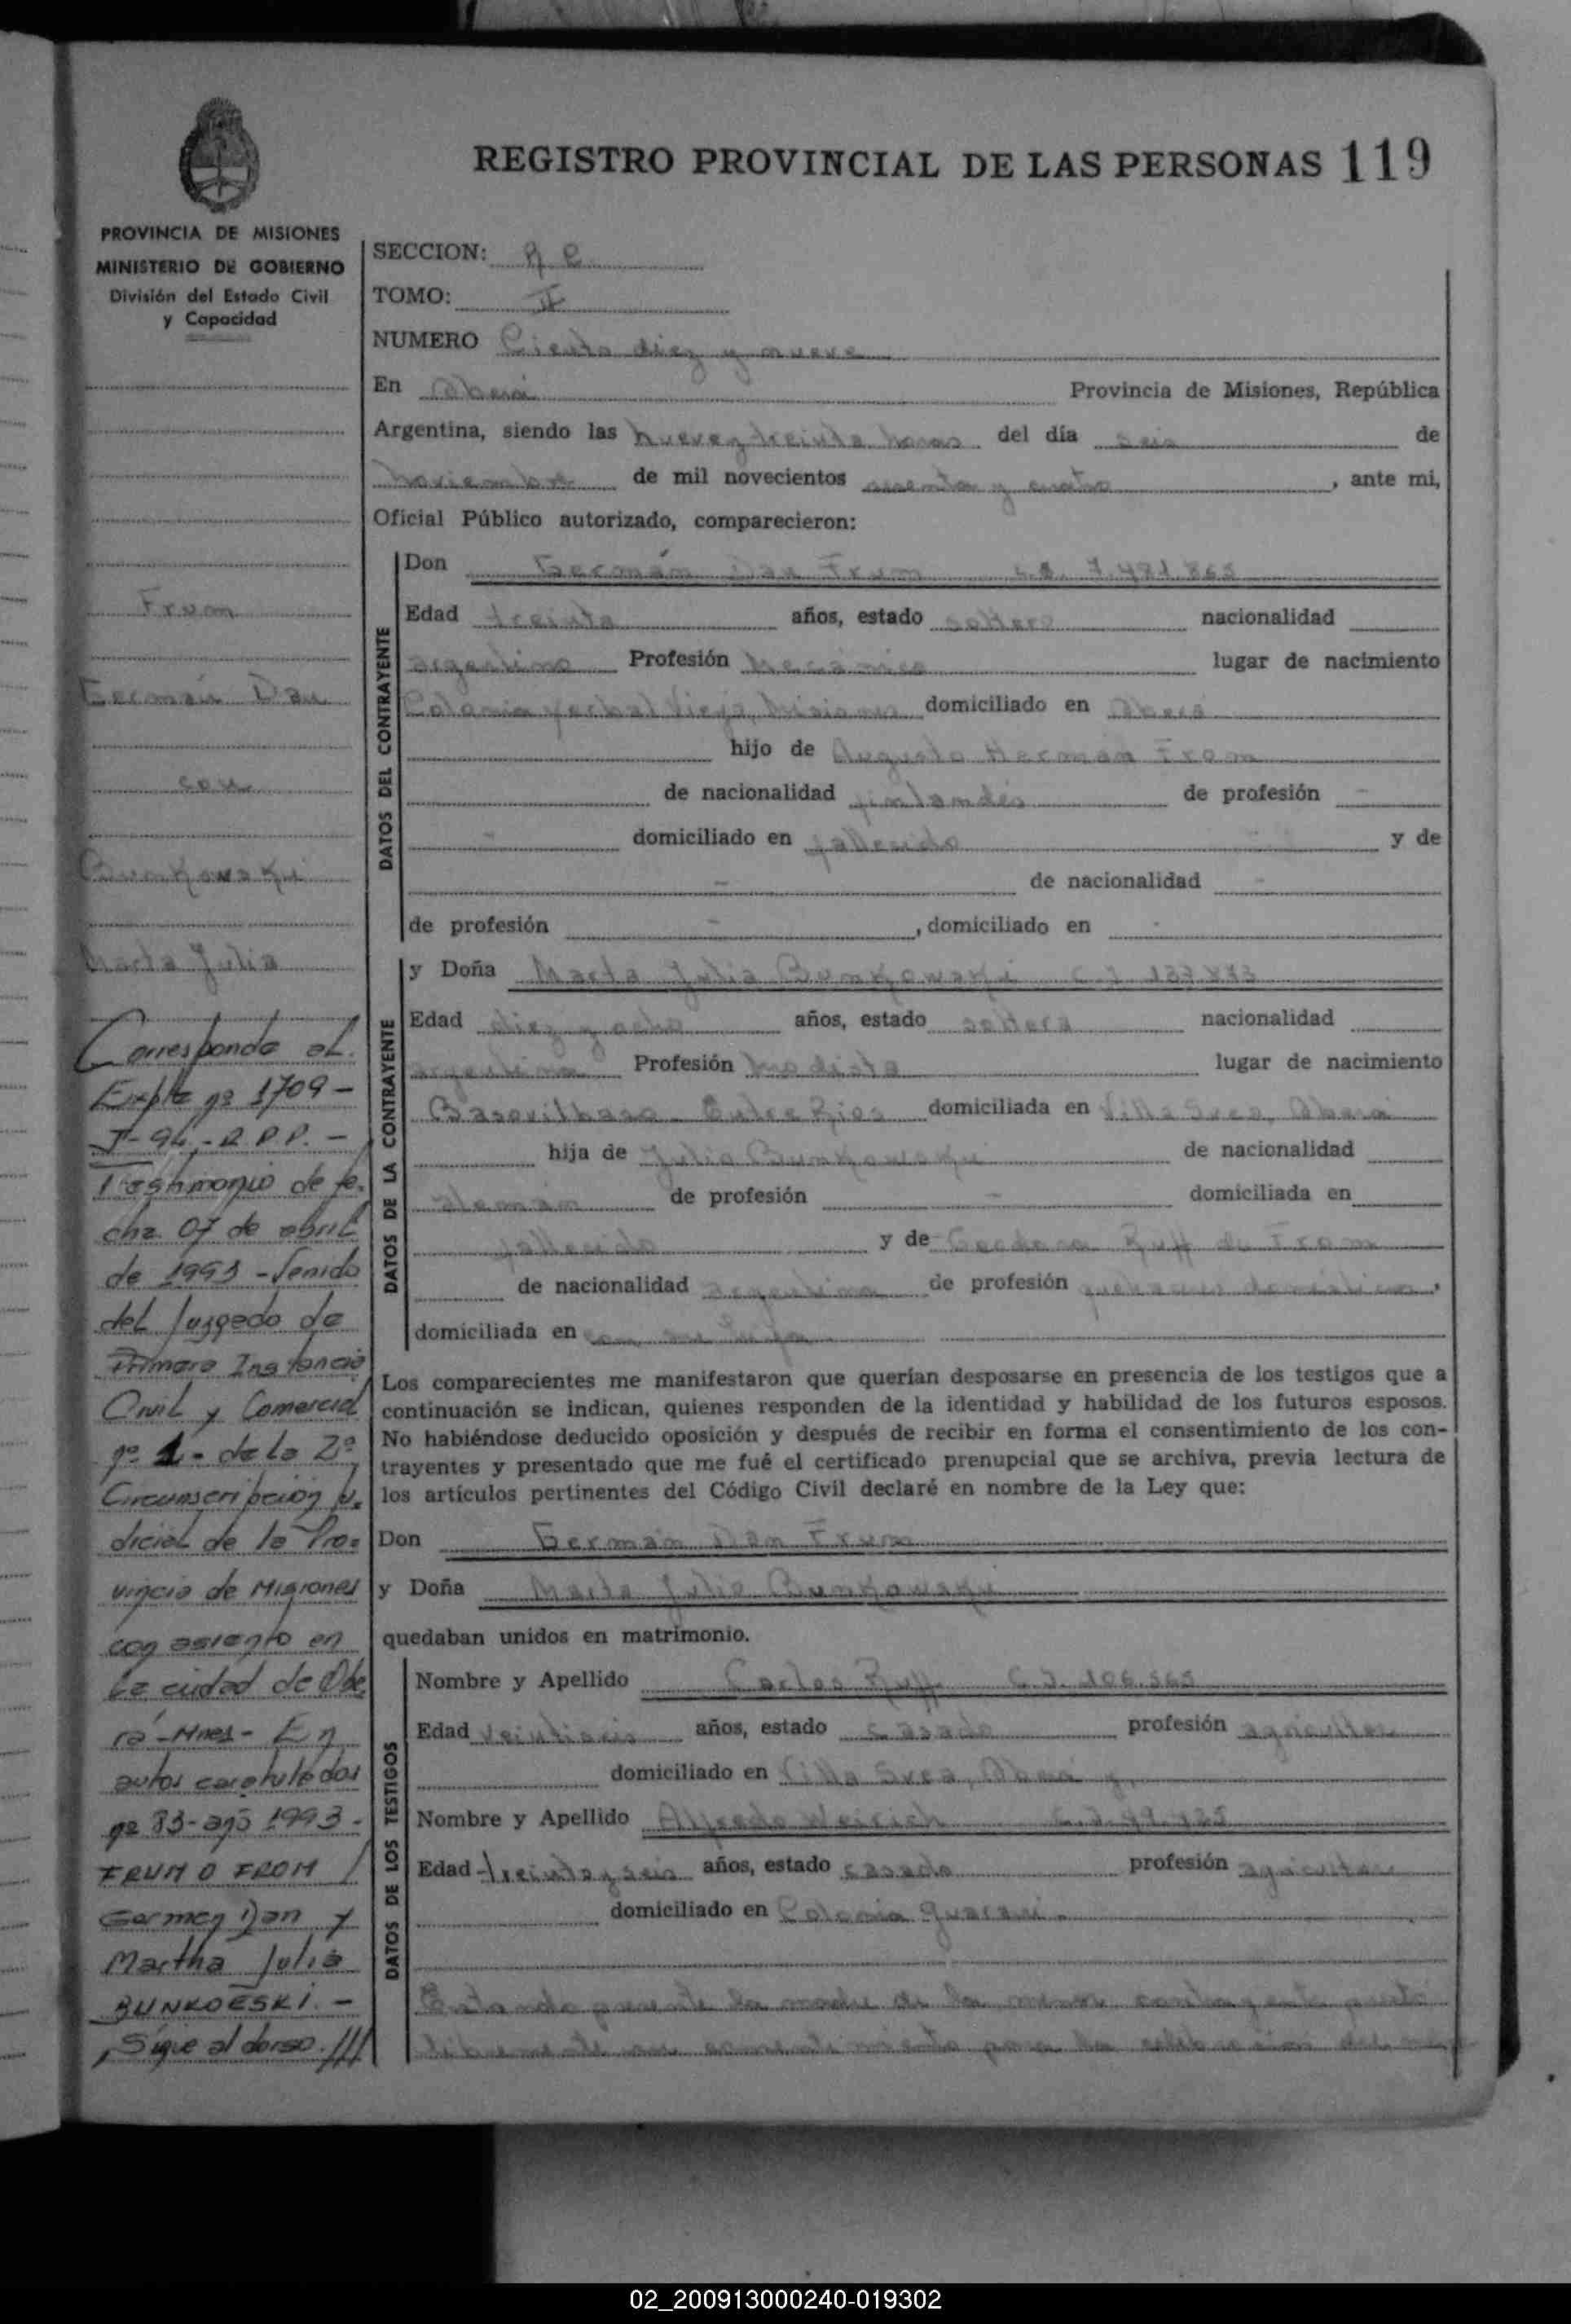 REGISTRO PROVINCIAL DE LAS PERSONAS 119
PROVINCIA DE MISIONES
MINISTERIO DE GOBIERNO
División del Estado Civil
y Capacidad
Frum
Germán Dan
con
Bunkowski
Marta Julia
Corresponde al
Expte nº 1709-
Testimonio de fe-
cha 07 de abril
de 1993 - Venido
del Juzgado de
Primera Instancia
Civil y Comercial
nº 1 - de la 2º
Circunscripción Ju-
dicial de la Pro-
vincia de Misiones
con asiento en
la ciudad de Obe
rá - Mnes - En
autos caratulados
nº 83 - año 1993 -
FRUM O FROM
German Dan y
Martha Julia
BUNKOESKI. -
Sigue al dorso. ///
SECCION:
TOMO: II
NUMERO Ciento diez y nueve
En Oberá Provincia de Misiones, República
Argentina, siendo las nueve y treinta horas del día seis de
noviembre de mil novecientos sesenta y cuatro, ante mi,
Oficial Público autorizado, comparecieron:
DATOS DEL CONTRAYENTE
Don Germán Dan Frum 7.481.865
Edad treinta años, estado soltero nacionalidad
argentino Profesión Mecánico lugar de nacimiento
Colonia Yerbal Viejo, Misiones domiciliado en Oberá
hijo de Augusto Herman From
de nacionalidad finlandés de profesión -
- domiciliado en fallecido - y de
- de nacionalidad -
de profesión - , domiciliado en -
DATOS DE LA CONTRAYENTE
y Doña Marta Julia Bunkowski C.I. 137.873
Edad diez y ocho años, estado soltera nacionalidad
argentina Profesión modista lugar de nacimiento
Basavilbaso - Entre Rios domiciliada en Villa Svea, Oberá
hija de Julio Bunkowski de nacionalidad
alemán de profesión - domiciliada en
fallecido y de Ruff de From
de nacionalidad argentina de profesión quehaceres domésticos,
domiciliada en con su hija
Los comparecientes me manifestaron que querían desposarse en presencia de los testigos que a
continuación se indican, quienes responden de la identidad y habilidad de los futuros esposos.
No habiéndose deducido oposición y después de recibir en forma el consentimiento de los con-
trayentes y presentado que me fué el certificado prenupcial que se archiva, previa lectura de
los artículos pertinentes del Código Civil declaré en nombre de la Ley que:
Don Germán Dan Frum
y Doña Marta Julia Bunkowski
quedaban unidos en matrimonio.
DATOS DE LOS TESTIGOS
Nombre y Apellido Carlos Ruff C.I. 106.565
Edad veintiseis años, estado casado profesión agricultor
domiciliado en Villa Svea, Oberá y
Nombre y Apellido Alfredo Weirich
Edad treinta y seis años, estado casado profesión agricultor
domiciliado en Colonia Guaraní.
Estando presente la madre de la menor contrayente prestó
libremente su consentimiento para la celebración del
02_200913000240-019302